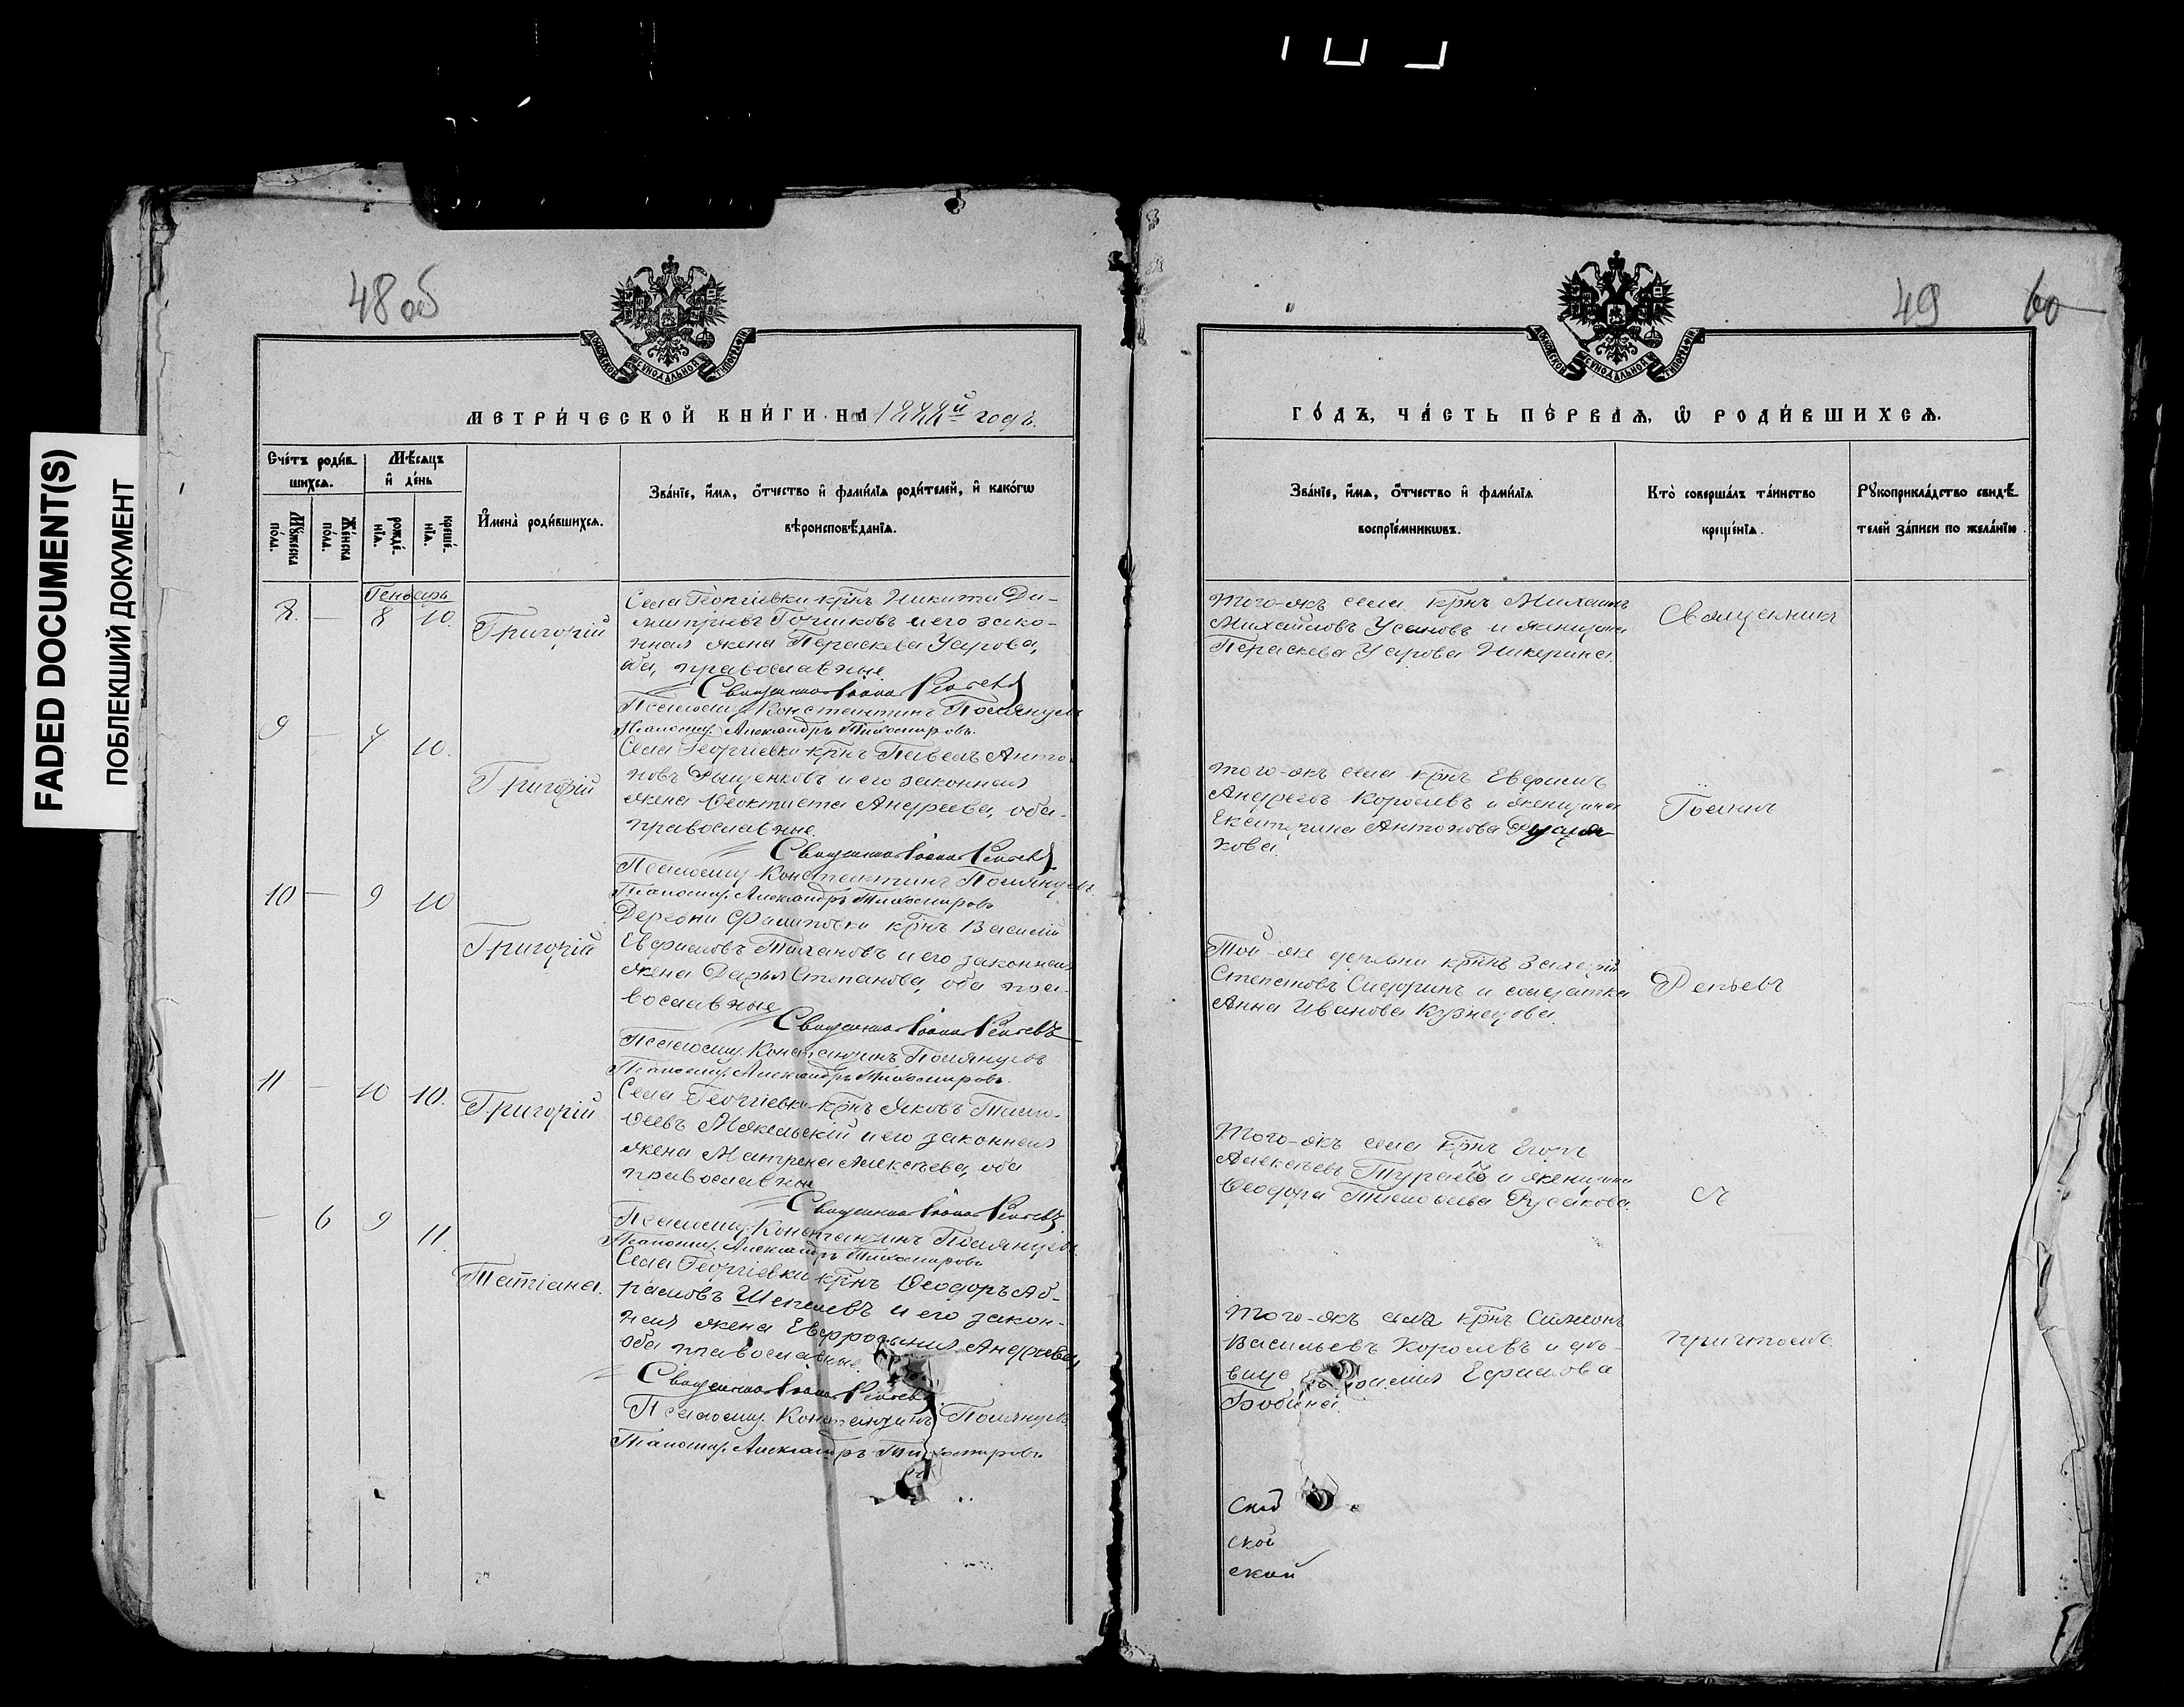 FADED DOCUMENT(S)
ПОБЛЕКШИЙ ДОКУМЕНТ
48 об
МЕТРИ́ЧЕСКОЙ КНИ́ГИ НА 1888й годъ.
Сче́тъ роди́в-
шихся.
Мѣ́сяцъ
и҆ де́нь
Мꙋ́жеска
пола.
Же́нска
по́ла.
рожде́-
нїѧ.
креще́-
нїѧ.
И҆мена̀ роди́вшихсѧ.
Зва́нїе, и҆́мѧ, ѻ҆́тчество и҆ фамі́лїѧ роди́телей, и҆ како́гѡ
вѣроисповѣ́данїѧ.
Генварь
8. — 8 10.
Григорій
Села Георгіевки крнъ Никита Ди-
митріевъ Горшковъ и его зако-
нная жена Параскева Уарова,
оба, православные
Священникъ Іоаннъ Репьевъ
Псаломщ. Константинъ Полянцевъ
Псаломщ. Александръ Тихомировъ.
9 — 4 10.
Григорій
Села Георгіевки крнъ Павелъ Анто-
новъ и его законная
жена Ѳеоктиста Андреева, оба
православные.
Священникъ Іоаннъ Репьевъ
Псаломщ. Константинъ Полянцевъ.
Псаломщ. Александръ Тихомировъ
10 — 9 10
Григорій
Деревни Филиповки крнъ Василій
Евфимовъ и его законная
жена Дарья Степанова, оба пра-
вославные
Священникъ Іоаннъ Репьевъ
Псаломщ. Константинъ Полянцевъ
Псаломщ. Александръ Тихомировъ.
11 — 10 10.
Григорій
Села Георгіевки крнъ Яковъ Тимо-
ѳеевъ и его законная
жена Матрена Алексѣева, оба
православные
Священникъ Іоаннъ Репьевъ
Псаломщ. Константинъ Полянцевъ.
Псаломщ. Александръ Тихомировъ
— 6 9 11.
Татіана.
Села Георгіевки крнъ Ѳеодоръ Аб-
рамовъ Шепелевъ и его закон-
ная жена Евфросинія Андреева
оба православные.
Священникъ Іоаннъ Репьевъ
Псаломщ. Константинъ Полянцевъ
Псаломщ. Александръ Тихомировъ
49
60
ГО́ДЪ, ЧА́СТЬ ПЕ́РВАѦ, Ѡ҆ РОДИ́ВШИХСѦ.
Зва́нїе, и҆́мѧ, ѻ҆́тчество и҆ фамі́лїѧ
воспрїе́мникѡвъ.
Кто̀ соверша́лъ та́инство
креще́нїѧ.
Рꙋкоприкла́дство свидѣ́-
телей за́писи по жела́нїю.
Того-жъ села крнъ Михаилъ
Михайловъ Усановъ и женщина
Параскева Уарова Никерина.
Священникъ
того-жъ села крнъ Евфимъ
Андреевъ Королевъ и женщина
Екатерина Антонова
кова.
Іоаннъ
Той-же дервни крнъ
Степановъ Сидоринъ и солдатка
Анна Иванова Кузнецова.
Репьевъ
Того-жъ села крнъ Егоръ
Алексѣевъ Тураевъ и женщина
Ѳеодора Тимоѳеева Русакова.
съ
того-жъ села крнъ Симеонъ
Васильевъ Королевъ и дѣ-
вица Ефимова
Бобина.
причтомъ
ской
ской